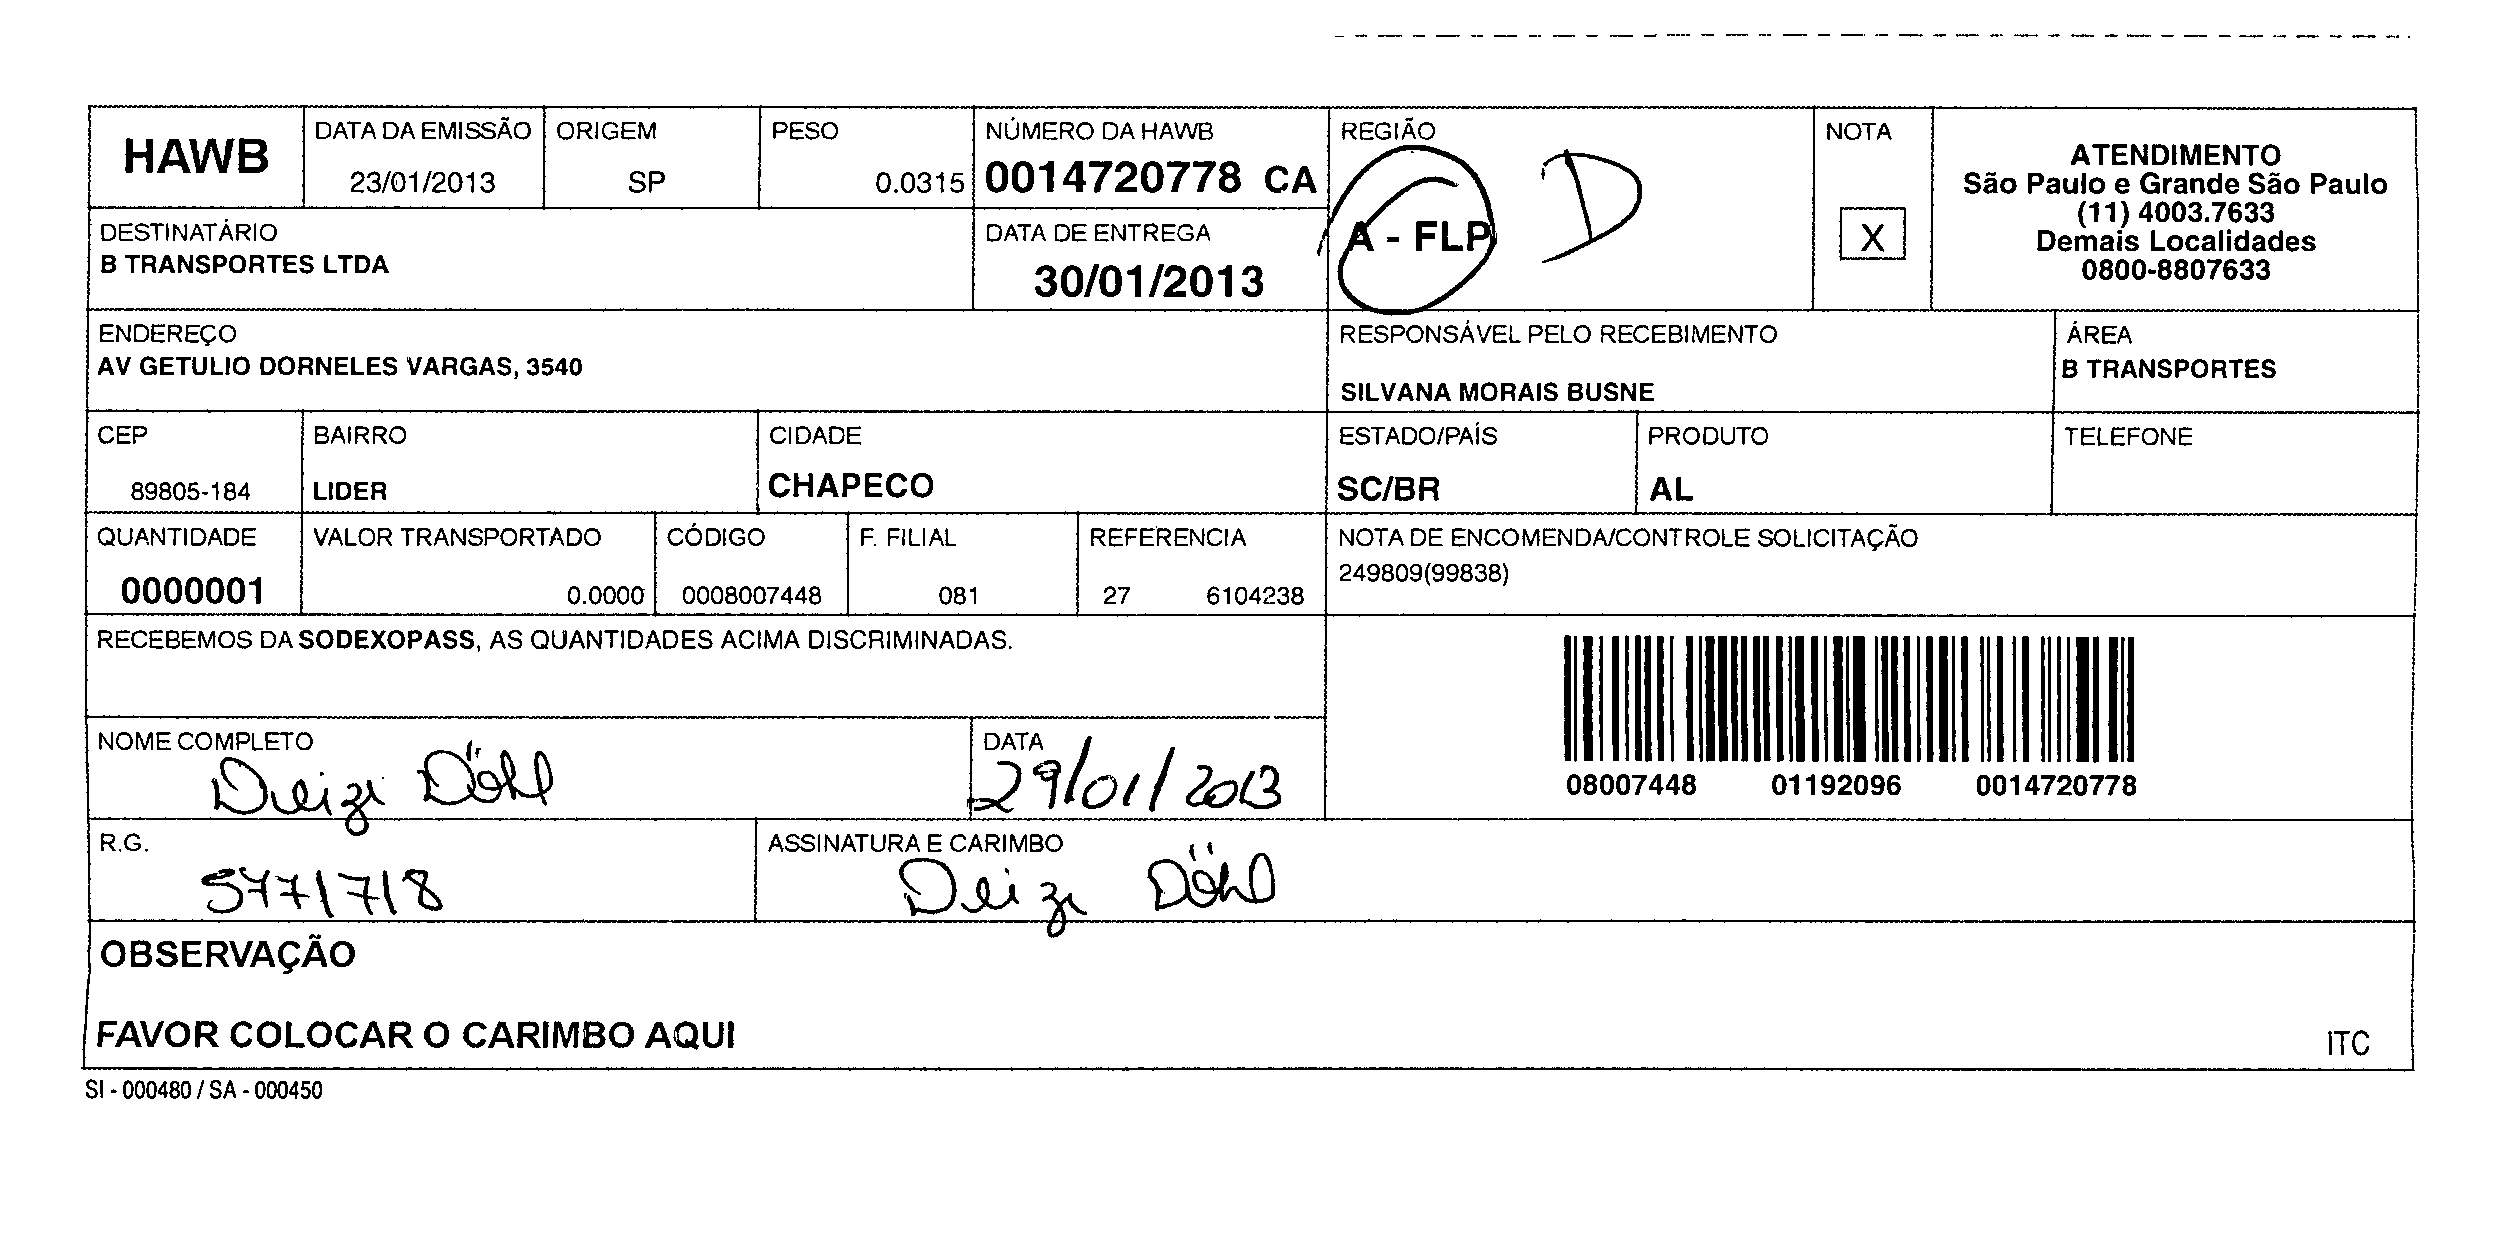 HAWB
DATA DA EMISSÃO
23/01/2013
ORIGEM
SP
PESO
0.0315
NÚMERO DA HAWB
0014720778 CA
REGIÃO
A - FLP
D
NOTA
X
ATENDIMENTO
São Paulo e Grande São Paulo
(11) 4003.7633
Demais Localidades
0800-8807633
DESTINATÁRIO
B TRANSPORTES LTDA
DATA DE ENTREGA
30/01/2013
ENDEREÇO
AV GETULIO DORNELES VARGAS, 3540
RESPONSÁVEL PELO RECEBIMENTO
SILVANA MORAIS BUSNE
ÁREA
B TRANSPORTES
CEP
89805-184
BAIRRO
LIDER
CIDADE
CHAPECO
ESTADO/PAÍS
SC/BR
PRODUTO
AL
TELEFONE
QUANTIDADE
0000001
VALOR TRANSPORTADO
0.0000
CÓDIGO
0008007448
F. FILIAL
081
REFERENCIA
27 6104238
NOTA DE ENCOMENDA/CONTROLE SOLICITAÇÃO
249809(99838)
RECEBEMOS DA SODEXOPASS, AS QUANTIDADES ACIMA DISCRIMINADAS.
08007448 01192096 0014720778
NOME COMPLETO
Deizi Döhl
DATA
29/01/2013
R.G.
5771718
ASSINATURA E CARIMBO
Deizi Döhl
OBSERVAÇÃO
FAVOR COLOCAR O CARIMBO AQUI
ITC
SI - 000480 / SA - 000450